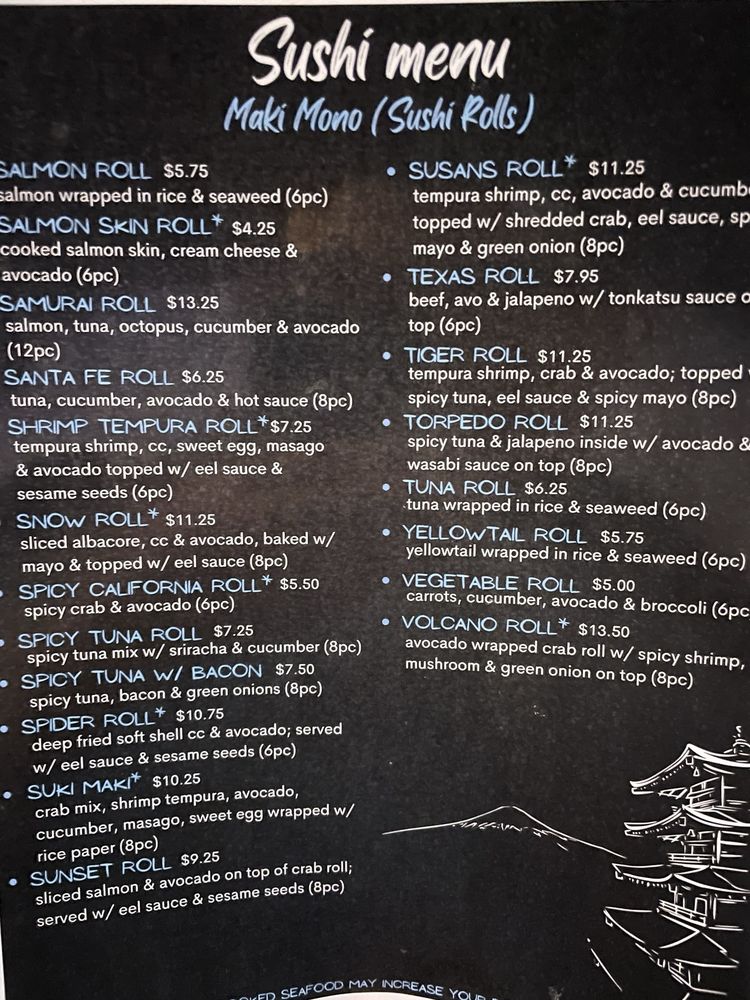 Sushi menu
Maki Mono (Sushi Rolls)
SALMON ROLL $5.75
salmon wrapped in rice & seaweed (6pc)
SALMON SKIN ROLL* $4.25
cooked salmon skin, cream cheese &
avocado (6pc)
SAMURAI ROLL $13.25
salmon, tuna, octopus, cucumber & avocado
(12pc)
SANTA FE ROLL $6.25
tuna, cucumber, avocado & hot sauce (8pc)
SHRIMP TEMPURA ROLL* $7.25
tempura shrimp, cc, sweet egg, masago
& avocado topped w/ eel sauce &
sesame seeds (6pc)
SNOW ROLL* $11.25
sliced albacore, cc & avocado, baked w/
mayo & topped w/ eel sauce (8pc)
• SPICY CALIFORNIA ROLL* $5.50
spicy crab & avocado (6pc)
• SPICY TUNA ROLL $7.25
spicy tuna mix w/ sriracha & cucumber (8pc)
• SPICY TUNA W/ BACON $7.50
spicy tuna, bacon & green onions (8pc)
• SPIDER ROLL* $10.75
deep fried soft shell cc & avocado; served
w/ eel sauce & sesame seeds (6pc)
• SUKI MAKI* $10.25
crab mix, shrimp tempura, avocado,
cucumber, masago, sweet egg wrapped w/
rice paper (8pc)
• SUNSET ROLL $9.25
sliced salmon & avocado on top of crab roll;
served w/ eel sauce & sesame seeds (8pc)
• SUSANS ROLL* $11.25
tempura shrimp, cc, avocado &
topped w/ shredded crab, eel sauce,
mayo & green onion (8pc)
• TEXAS ROLL $7.95
beef, avo & jalapeno w/ tonkatsu sauce
top (6pc)
• TIGER ROLL $11.25
tempura shrimp, crab & avocado; topped
spicy tuna, eel sauce & spicy mayo (8pc)
• TORPEDO ROLL $11.25
spicy tuna & jalapeno inside w/ avocado &
wasabi sauce on top (8pc)
• TUNA ROLL $6.25
tuna wrapped in rice & seaweed (6pc)
• YELLOWTAIL ROLL $5.75
yellowtail wrapped in rice & seaweed (6pc)
• VEGETABLE ROLL $5.00
carrots, cucumber, avocado & broccoli (6pc
• VOLCANO ROLL* $13.50
avocado wrapped crab roll w/ spicy shrimp,
mushroom & green onion on top (8pc)
SEAFOOD MAY INCREASE YOUR